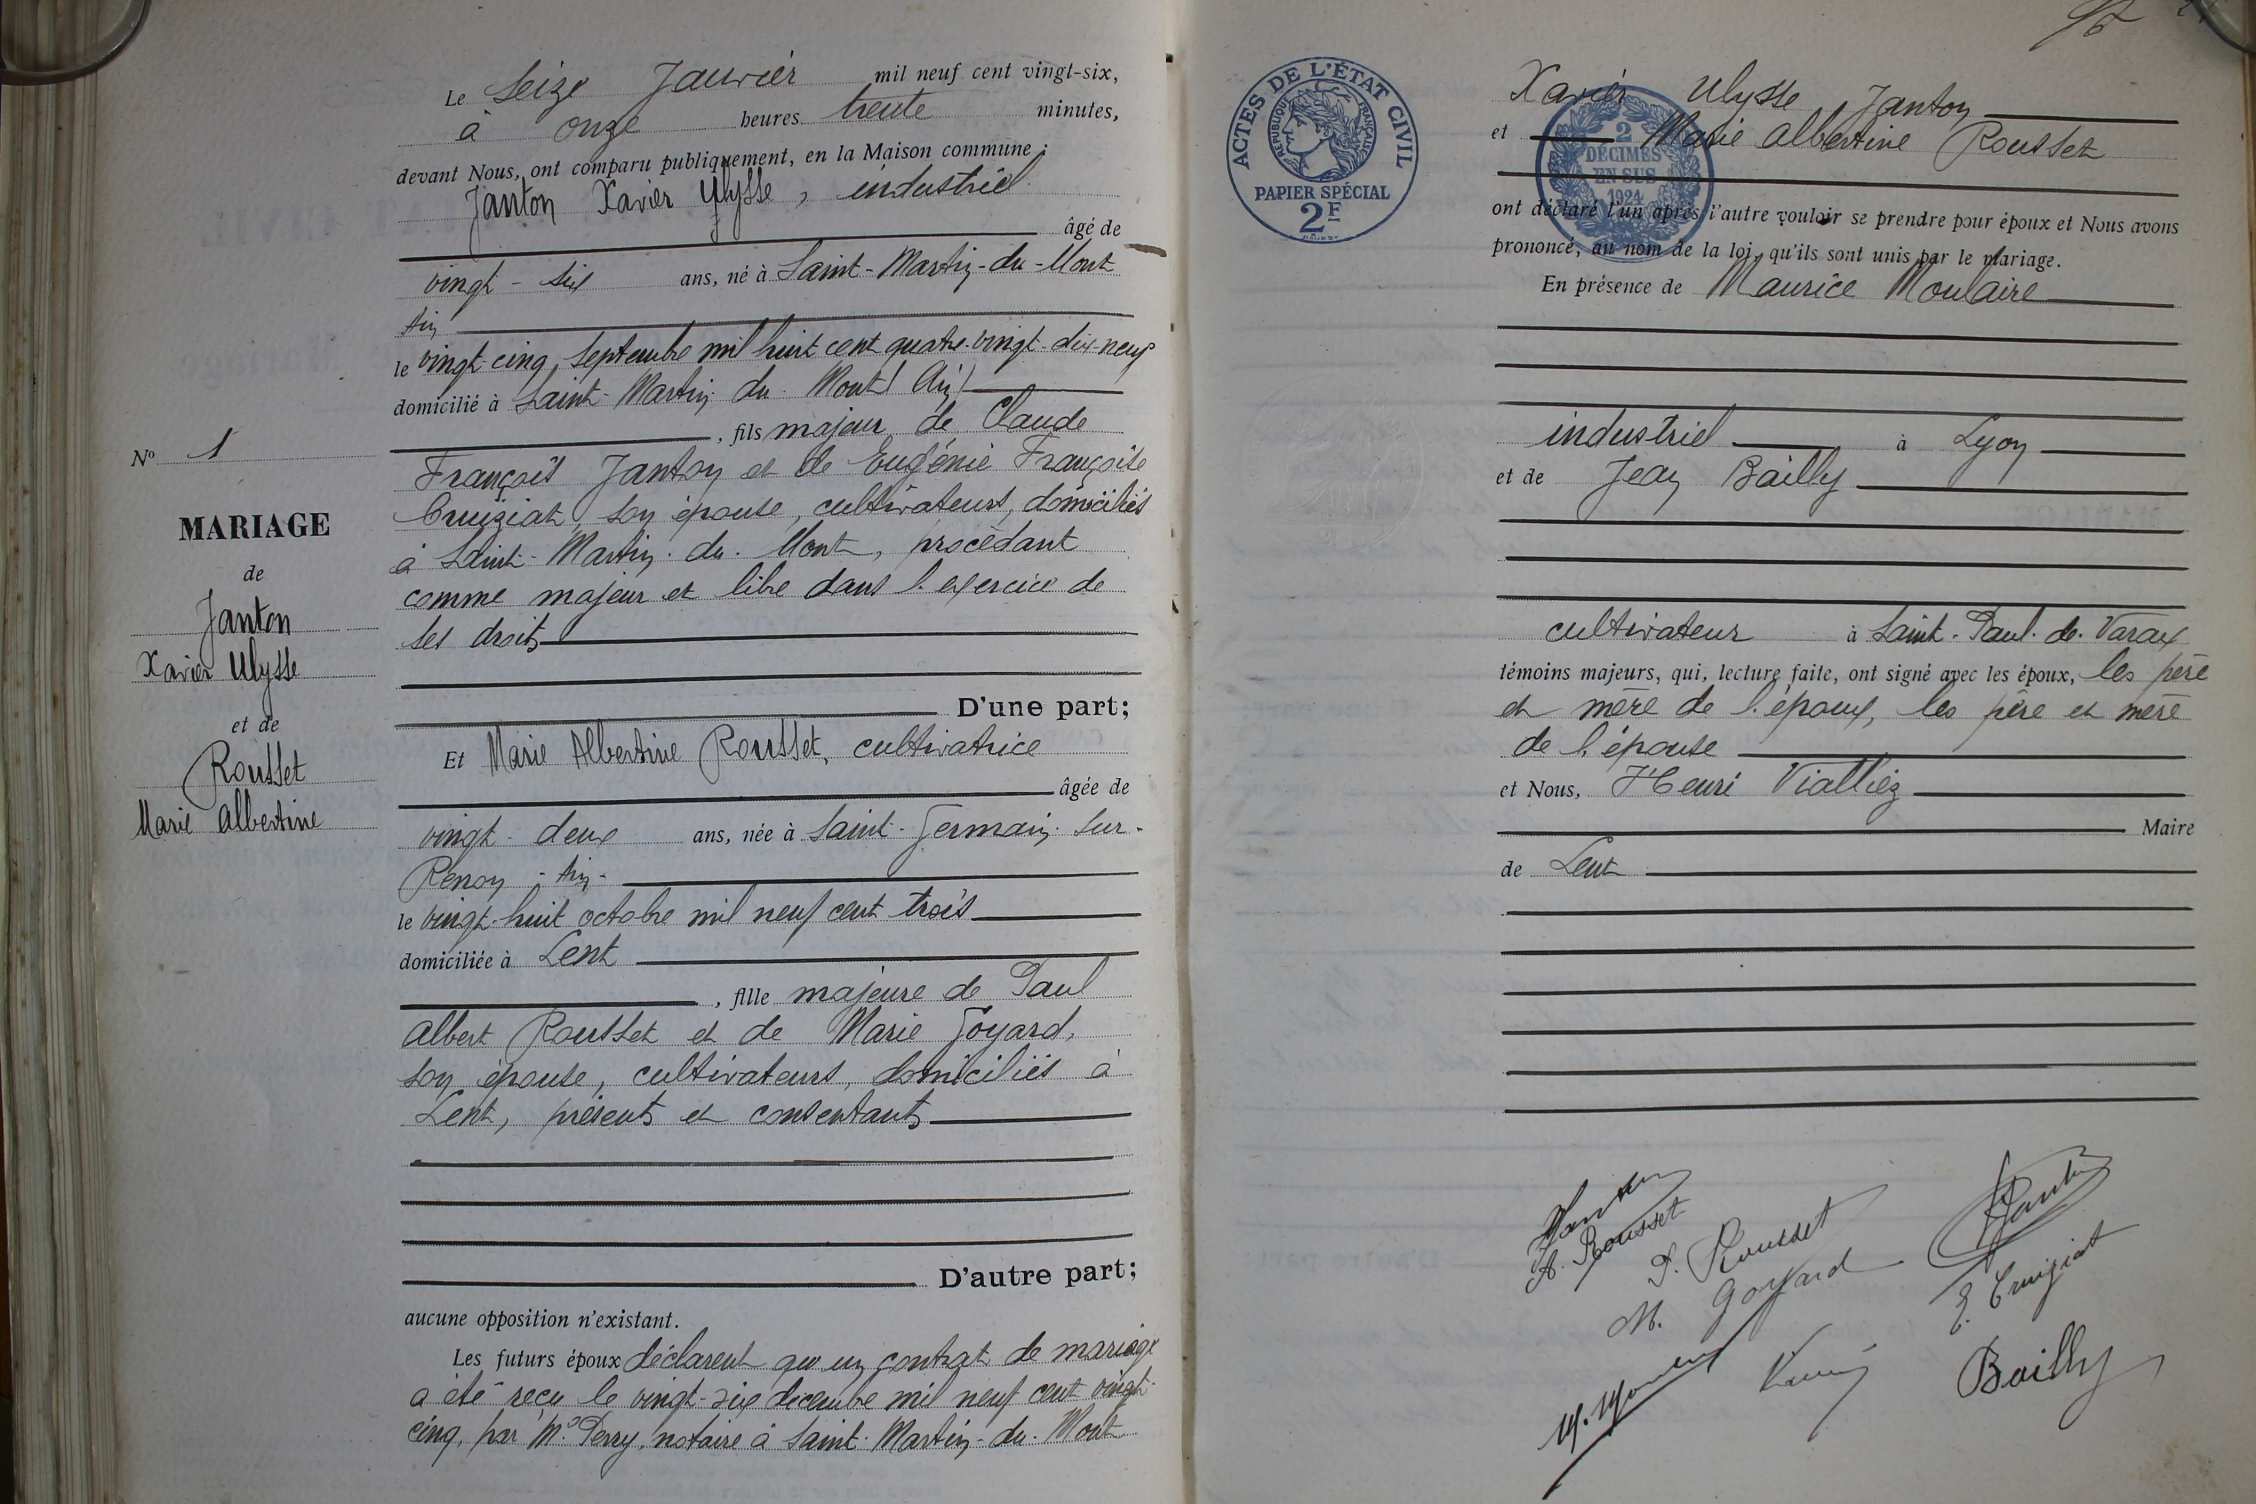 Le Seize Janvier mil neuf cent vingt-six,
à onze heures trente minutes,
devant Nous, ont comparu publiquement, en la Maison commune :
Janton Xavier Ulysse, industriel
âgé de
vingt-six ans, né à Saint-Martin-du-Mont
Ain
le vingt-cinq Septembre mil huit cent quatre-vingt-dix-neuf
domicilié à Saint-Martin-du-Mont (Ain)
, fils majeur de Claude
François Janton et de Eugénie Françoise
Cruiziat, son épouse, cultivateurs, domiciliés
à Saint-Martin-du-Mont, procédant
comme majeur et libre dans l'exercice de
ses droits
D'une part;
Et Marie Albertine Rousset, cultivatrice
âgée de
vingt-deux ans, née à Saint-Germain-sur-
Renon-Ain-
le vingt-huit octobre mil neuf cent trois
domiciliée à Lent
, fille majeure de Paul
Albert Rousset et de Marie Goyard,
son épouse, cultivateurs, domiciliés à
Lent, présents et consentants
D'autre part;
aucune opposition n'existant.
Les futurs époux déclarent qu'un contrat de mariage
a été reçu le vingt-six décembre mil neuf cent vingt-
cinq, par Me Perry, notaire à Saint-Martin-du-Mont
N° 1
MARIAGE
de
Janton
Xavier Ulysse
et de
Rousset
Marie Albertine
ACTES DE L'ÉTAT CIVIL
RÉPUBLIQUE FRANÇAISE
PAPIER SPÉCIAL
2F
2
DÉCIMES
EN SUS
1924
Xavier Ulysse Janton
et Marie Albertine Rousset
ont déclaré l'un après l'autre vouloir se prendre pour époux et Nous avons
prononcé, au nom de la loi, qu'ils sont unis par le mariage.
En présence de Maurice Moulaire
industriel à Lyon
et de Jean Bailly
cultivateur à Saint-Paul-de-Varax
témoins majeurs, qui, lecture faite, ont signé avec les époux, les père
et mère de l'époux, les père et mère
de l'épouse
et Nous, Henri Vialliez
Maire
de Lent
Janton
A. Rousset
P. Rousset
Janton
M. Goyard
E. Cruiziat
Bailly